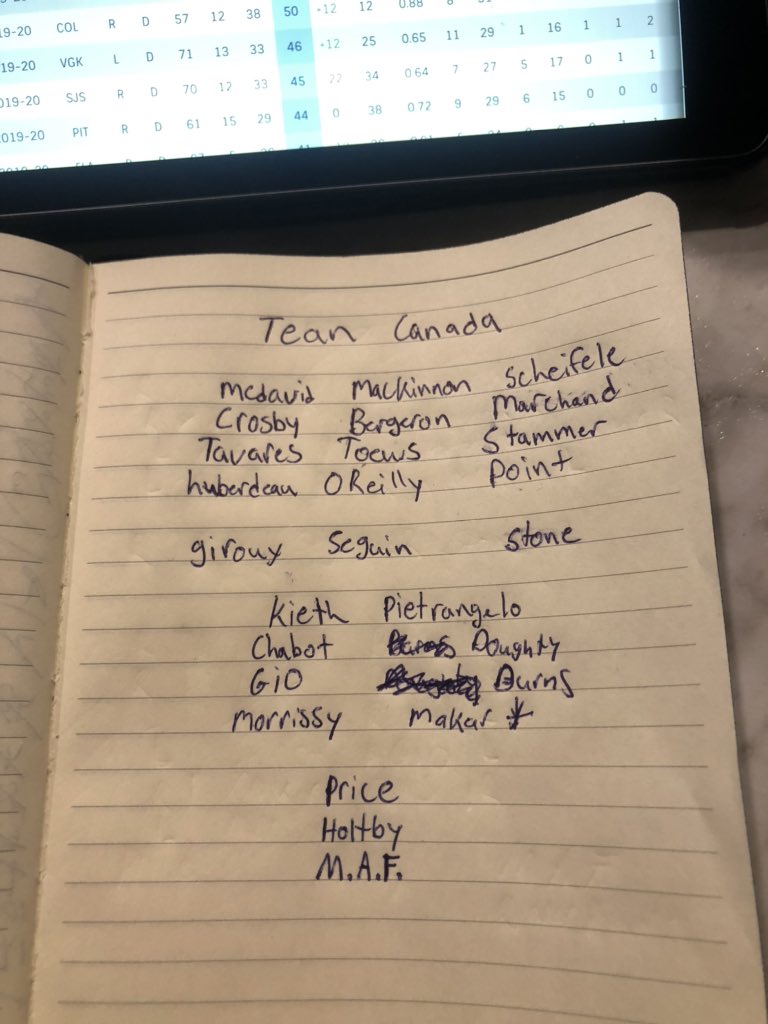 19-20 COL R D 57 12 38 50 +12 12 0.88 8
19-20 VGK L D 71 13 33 46 +12 25 0.65 11 29 1 16 1 1 2
019-20 SJS R D 70 12 33 45 22 34 0.64 7 27 5 17 0 1 1
2019-20 PIT R D 61 15 29 44 0 38 0.72 9 29 6 15 0 0 0
Tean Canada
mcdavid Mackinnon Scheifele
Crosby Bergeron Marchand
Tavares Toews Stammer
huberdeau OReilly Point
girouy Seguin Stone
Kieth Pietrangelo
Chabot Doughty
GiO Burns
morrissy Makar *
Price
Holtby
M.A.F.